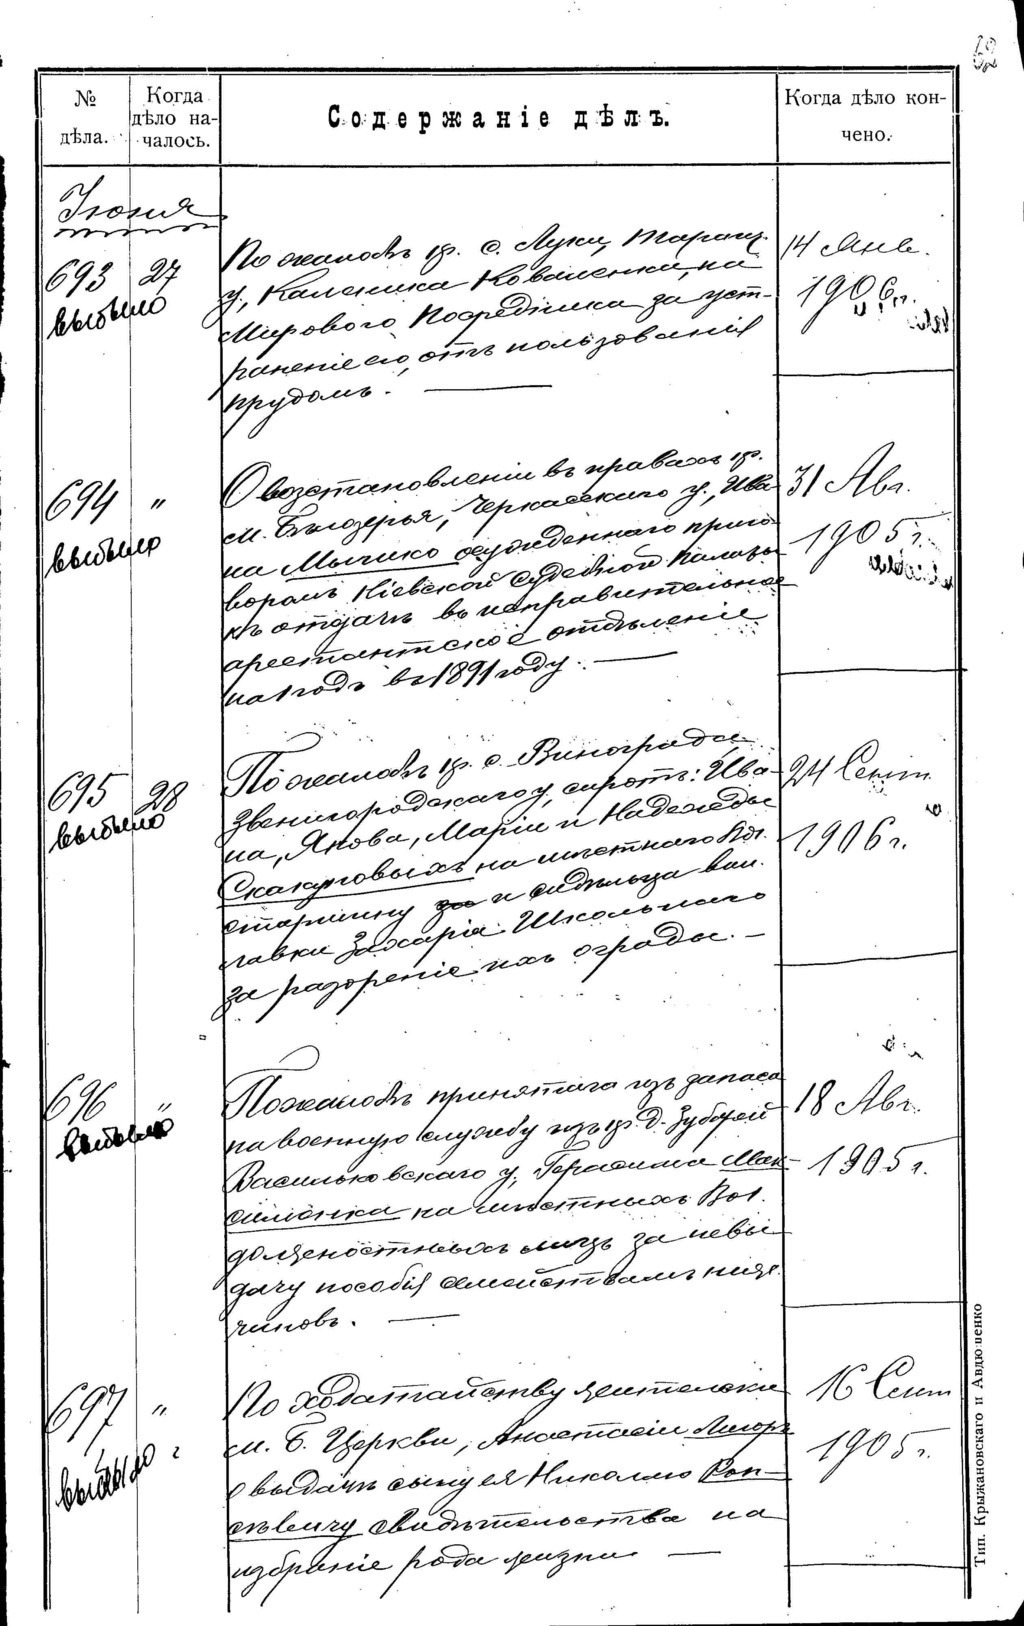 № дѣла.
Когда дѣло началось.
Содержаніе дѣлъ.
Когда дѣло кончено.
Іюня
693 27
выбыло
По жалобѣ кр. с. Луки, Таращ.
у., Каленика Коваленка, на
Мирового Посредника за уст-
раненіе его отъ пользованія
прудомъ. —
14 Янв.
1906 г.
694 "
выбыло
О возстановленіи въ правахъ кр.
м. Бѣлозерья, Черкасскаго у., Ива
на Мычико осужденнаго приго
воромъ Кіевской Судебной Палаты
къ отдачѣ въ исправительное
арестантское отдѣленіе
на 1 годъ въ 1891 году. —
31 Авг.
1905 г.
695 28
выбыло
По жалобѣ кр. с. Винограда
Звенигородскаго у, сиротъ: Ива-
на, Якова, Маріи и Надежды
Скакуновыхъ на мѣстнаго Вол.
старшину за и сидѣльца вин.
лавки Захарія Школьнаго
за разореніе ихъ ограды. —
24 Сент.
1906 г.
696 "
выбыло
По жалобѣ принятаго изъ запаса
на военную службу изъ кр. д.
Васильковскаго у, Герасима Мак-
симонка на мѣстныхъ Вол.
должностныхъ лицъ за невы
дачу пособія семействамъ нижн.
чиновъ. —
18 Авг.
1905 г.
697 "
выбыло
По ходатайству жительки
м. Б. Церкви, Анастасіи
о выдачѣ сыну ея Николаю
свидѣтельства на
избраніе рода жизни —
16 Сент
1905 г.
Тип. Крыжановскаго и Авдюшенко